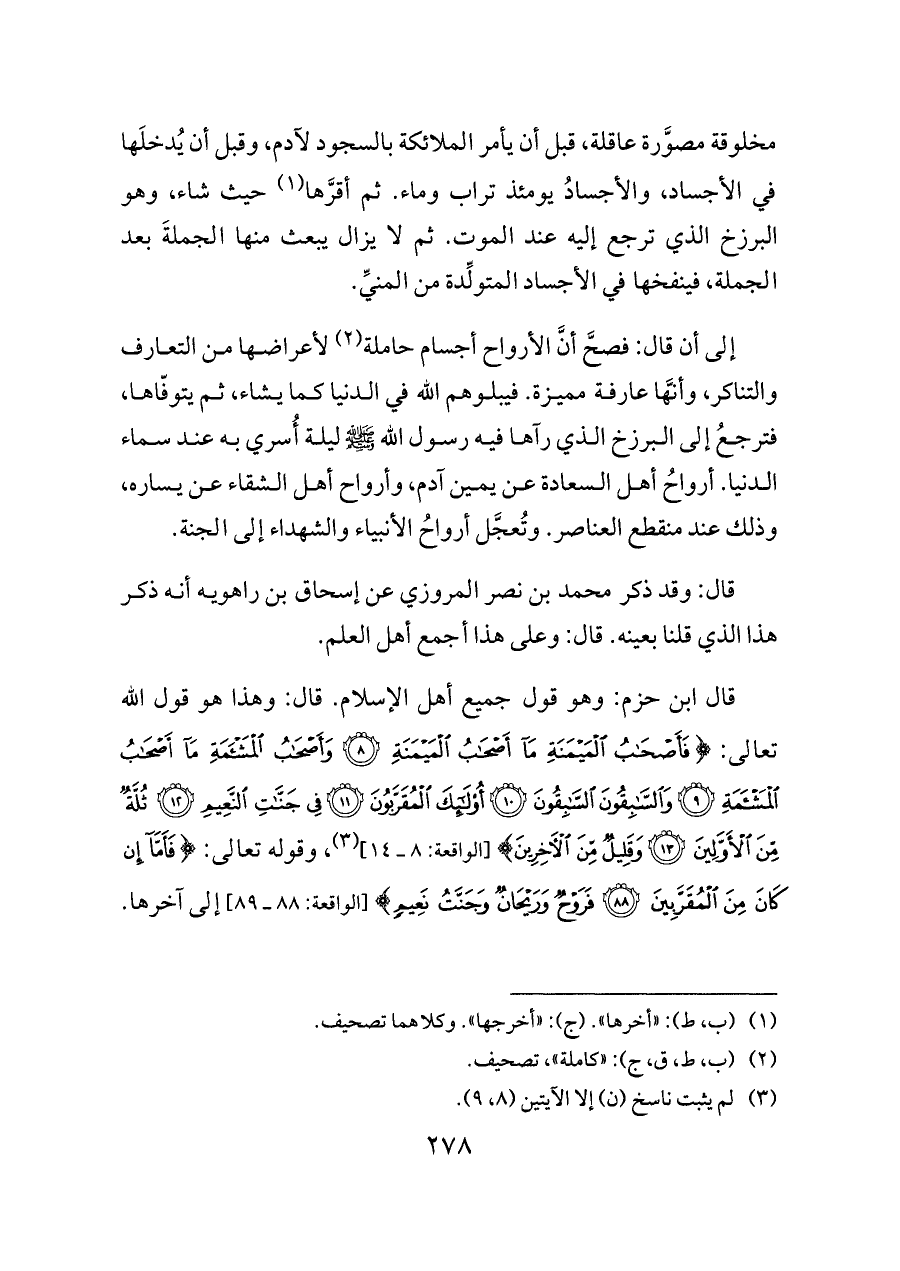 مخلوقة مصوَّرة عاقلة، قبل أن يأمر الملائكة بالسجود لآدم، وقبل أن يُدخلَها
في الأجساد، والأجسادُ يومئذ تراب وماء. ثم أقرَّها(١) حيث شاء، وهو
البرزخ الذي ترجع إليه عند الموت. ثم لا يزال يبعث منها الجملةَ بعد
الجملة، فينفخها في الأجساد المتولِّدة من المنيِّ.
إلى أن قال: فصحَّ أنَّ الأرواح أجسام حاملة(٢) لأعراضها من التعارف
والتناكر، وأنَّها عارفة مميزة. فيبلوهم الله في الدنيا كما يشاء، ثم يتوفّاها،
فترجعُ إلى البرزخ الذي رآها فيه رسول الله ﷺ ليلة أُسري به عند سماء
الدنيا. أرواحُ أهل السعادة عن يمين آدم، وأرواح أهل الشقاء عن يساره،
وذلك عند منقطع العناصر. وتُعجَّل أرواحُ الأنبياء والشهداء إلى الجنة.
قال: وقد ذكر محمد بن نصر المروزي عن إسحاق بن راهويه أنه ذكر
هذا الذي قلنا بعينه. قال: وعلى هذا أجمع أهل العلم.
قال ابن حزم: وهو قول جميع أهل الإسلام. قال: وهذا هو قول الله
تعالى: ﴿فَأَصْحَٰبُ ٱلْمَيْمَنَةِ مَآ أَصْحَٰبُ ٱلْمَيْمَنَةِ ۝٨ وَأَصْحَٰبُ ٱلْمَشْـَٔمَةِ مَآ أَصْحَٰبُ
ٱلْمَشْـَٔمَةِ ۝٩ وَٱلسَّٰبِقُونَ ٱلسَّٰبِقُونَ ۝١٠ أُو۟لَٰٓئِكَ ٱلْمُقَرَّبُونَ ۝١١ فِى جَنَّٰتِ ٱلنَّعِيمِ ۝١٢ ثُلَّةٌ
مِّنَ ٱلْأَوَّلِينَ ۝١٣ وَقَلِيلٌ مِّنَ ٱلْـَٔاخِرِينَ﴾ [الواقعة: ٨ ـ ١٤](٣)، وقوله تعالى: ﴿فَأَمَّآ إِن
كَانَ مِنَ ٱلْمُقَرَّبِينَ ۝٨٨ فَرَوْحٌ وَرَيْحَانٌ وَجَنَّتُ نَعِيمٍ﴾ [الواقعة: ٨٨ ـ ٨٩] إلى آخرها.
(١) (ب، ط): «أخرها». (ج): «أخرجها». وكلاهما تصحيف.
(٢) (ب، ط، ق، ج): «كاملة»، تصحيف.
(٣) لم يثبت ناسخ (ن) إلا الآيتين (٨، ٩).
٢٧٨